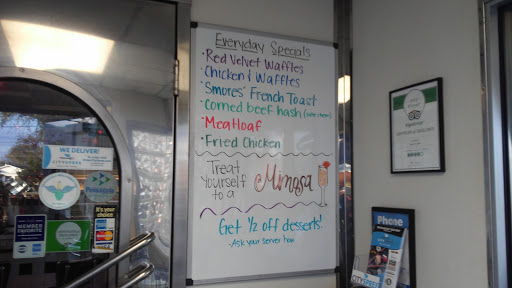 Everyday Specials
•Red Velvet Waffles
•Chicken & Waffles
•Smores' French Toast
•Corned beef hash
•Meatloaf
•Fried Chicken
Treat
Yourself
to a
Mimosa
Get 1/2 off desserts!
-Ask your server how
WE DELIVER!
it's your
choice
MEMBER
FAVORITE
Phone